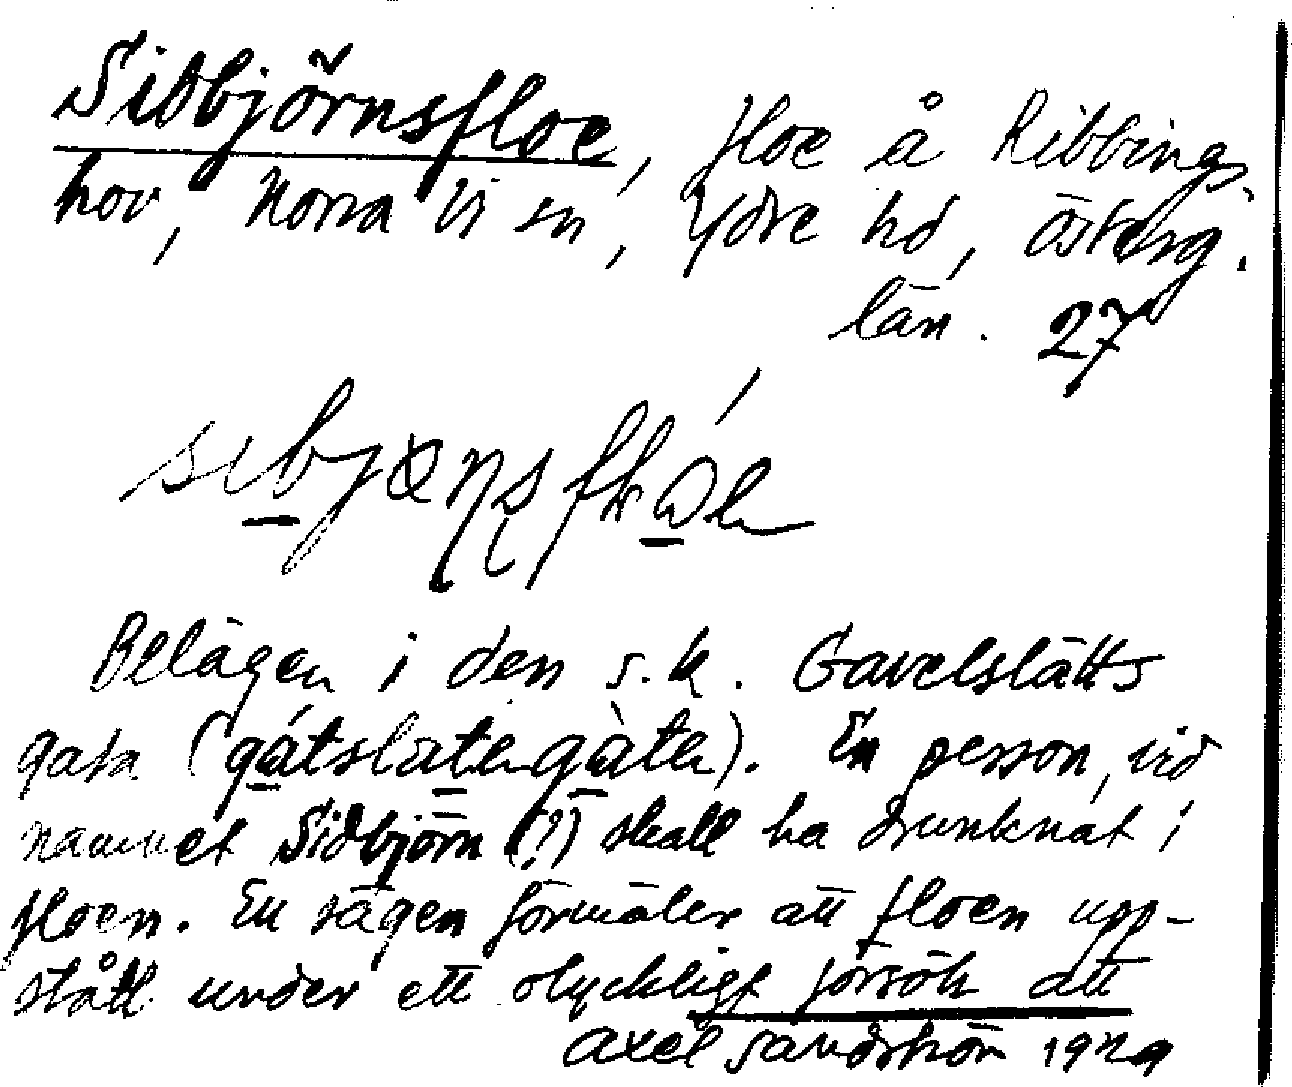 Sidbjörnsfloe, floe å Ribbings-
hov, Norra Vi sn, Ydre hd, Österg.
län. 27
Belägen i den s.k. Gavelslätts
gata (gátslatergàter). En person, vid
namnet Sidbjörn (!) skall ha drunknat i
floen. En sägen förmäler att floen upp-
stått under ett olyckligt försök att
Axel Sandström 1929